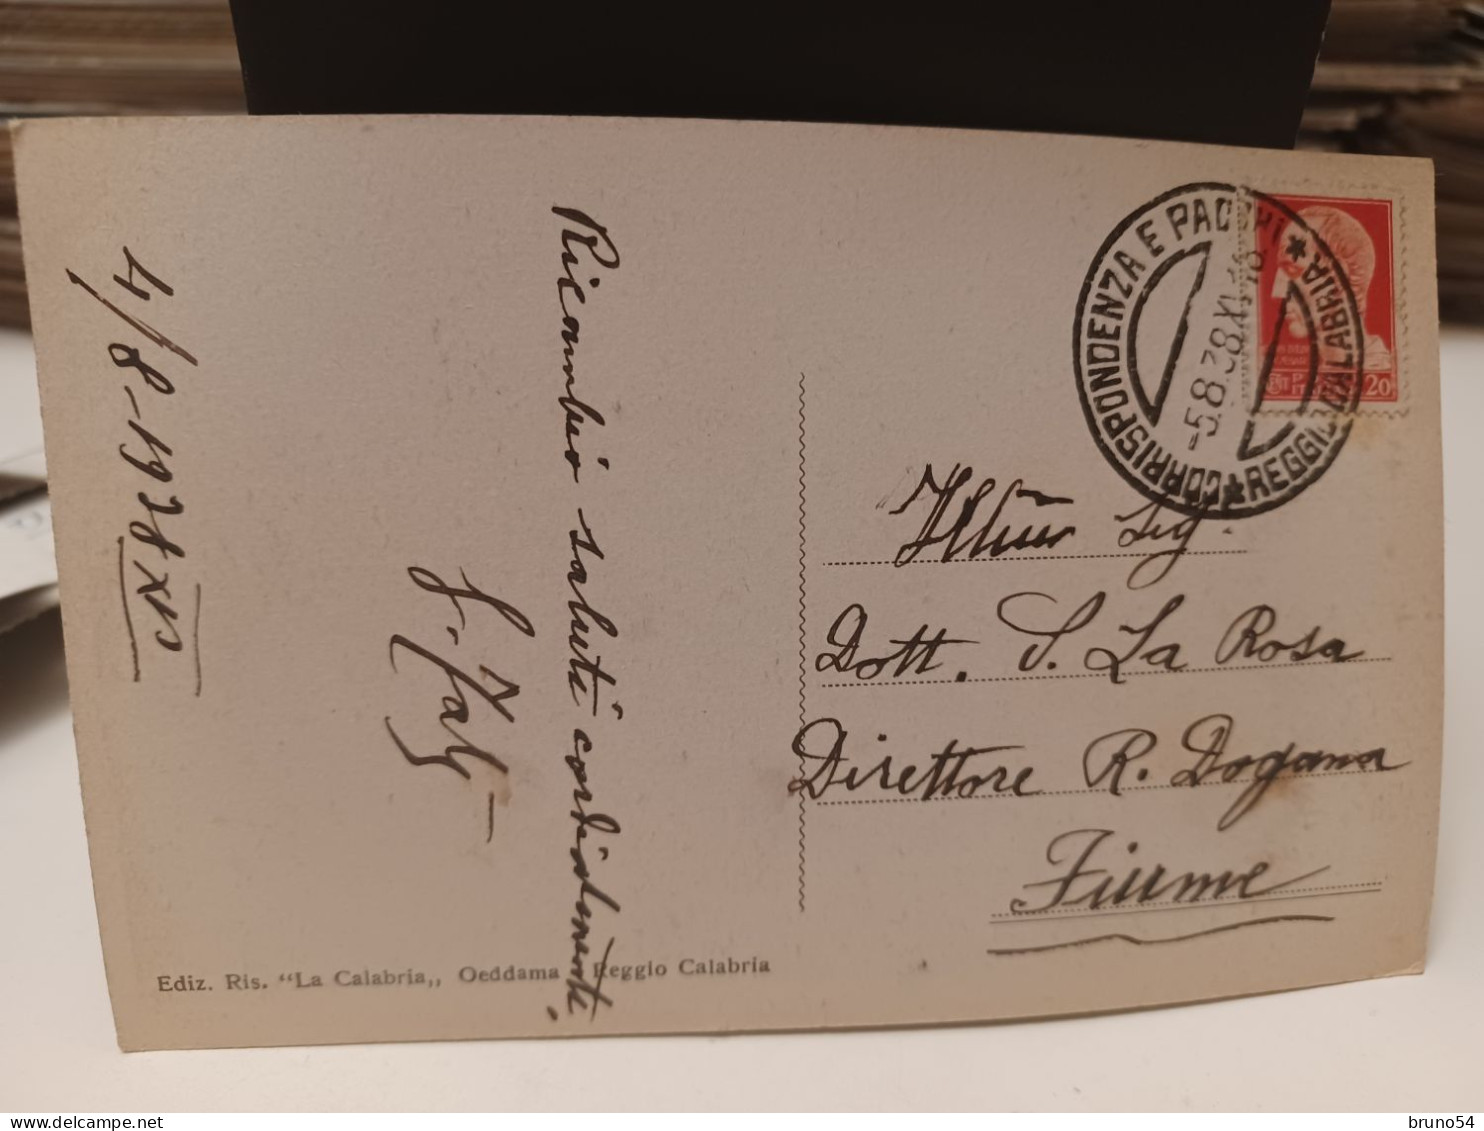 4/8-1938 XVI
Ricambio saluti cordialmente
Illmo Sig.
Dott. S. La Rosa
Direttore R. Dogana
Fiume
CORRISPONDENZA E PACCHI
REGGIO CALABRIA
-5.8.38 XVI
20
Ediz. Ris. "La Calabria,, Oeddama Reggio Calabria
bruno54